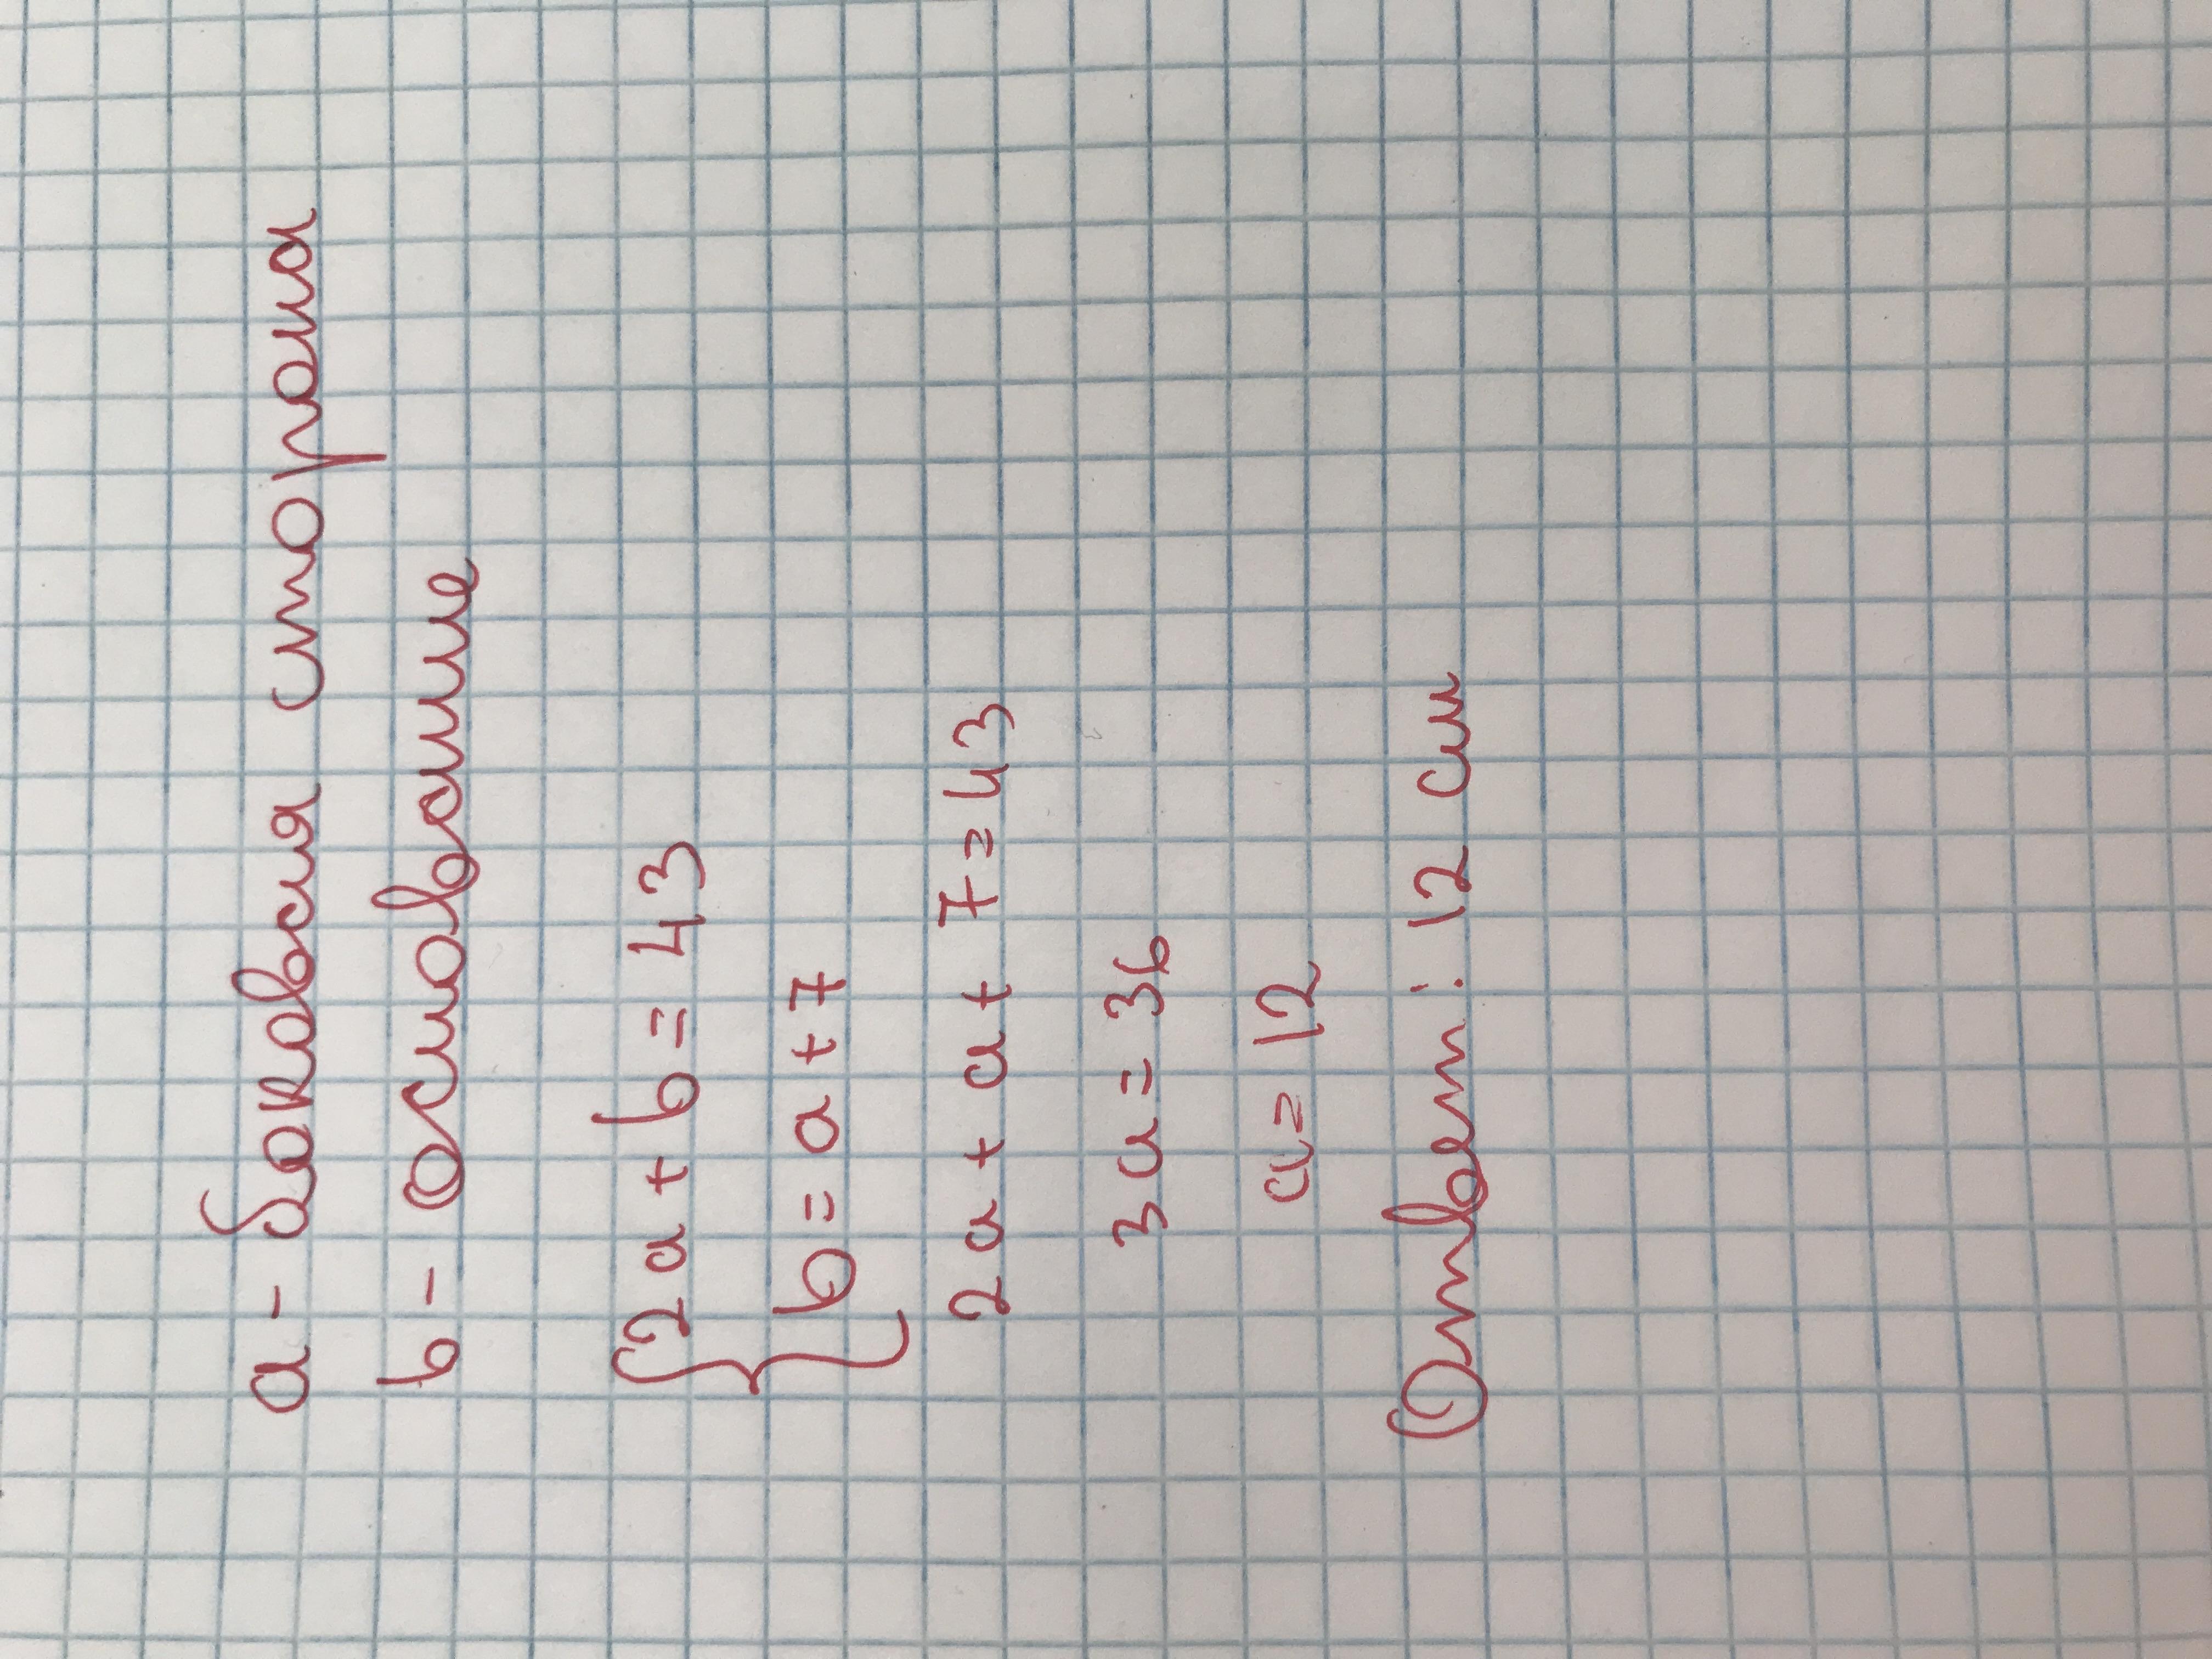 a - боковая сторона
b - основание
2a + b = 43
b = a + 7
2a + a + 7 = 43
3a = 36
a = 12
Ответ: 12 см